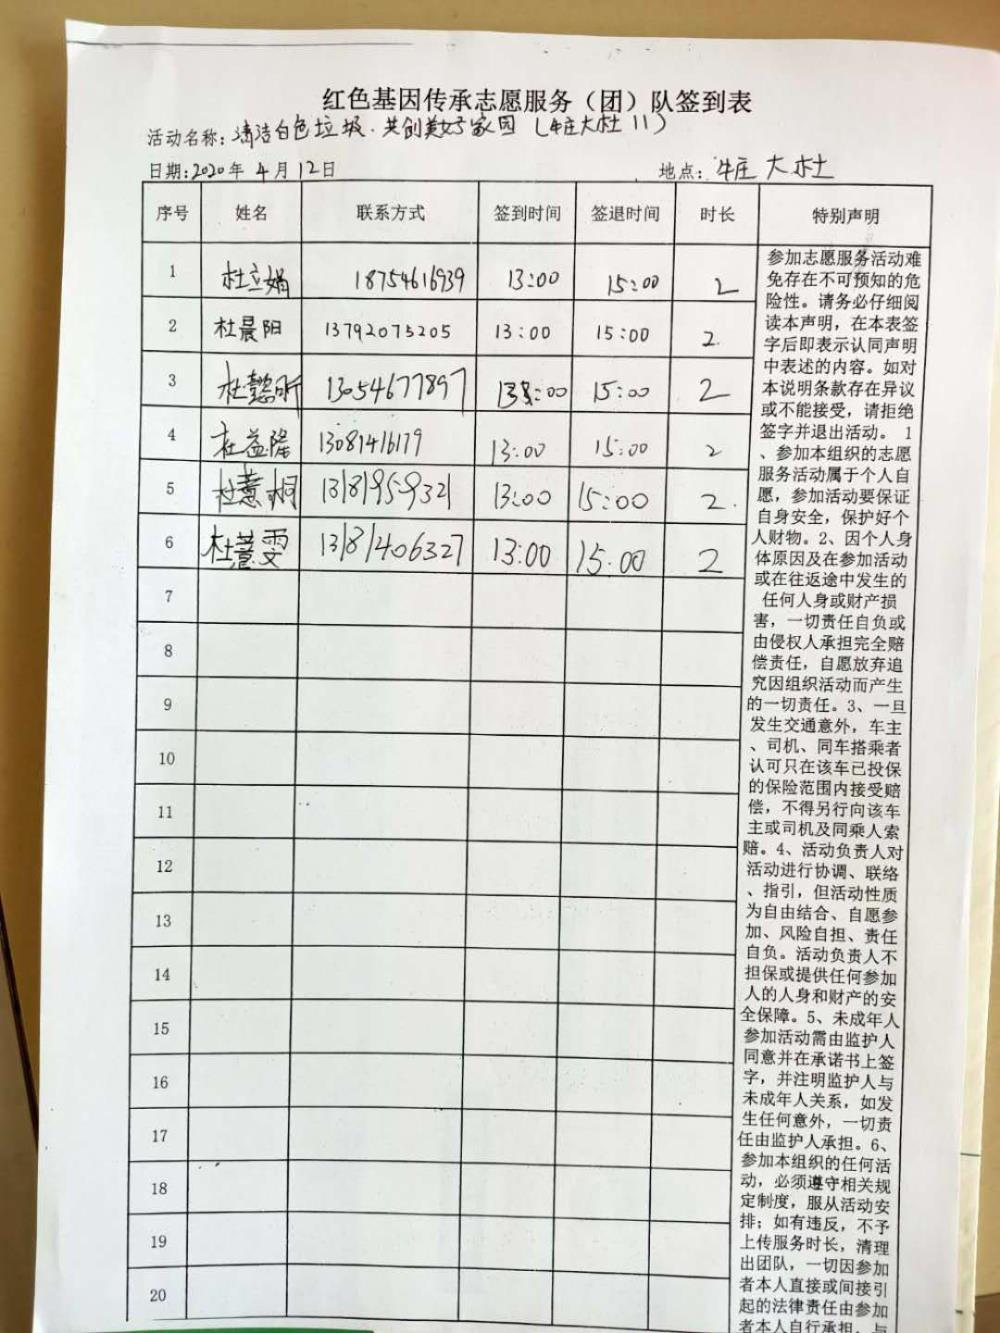 红色基因传承志愿服务（团）队签到表
活动名称：清洁白色垃圾．共创美好家园（牛庄大杜11）
日期：2020年4月12日 地点：牛庄大杜
序号 姓名 联系方式 签到时间 签退时间 时长 特别声明
1 杜立娟 18754616939 13:00 15:00 2
2 杜晨阳 13792075205 13:00 15:00 2.
3 杜懿昕 13054677897 13:00 15:00 2
4 杜益隆 13081416179 13:00 15:00 2
5 杜薏桐 13181959321 13:00 15:00 2.
6 杜薏雯 13181406327 13:00 15.00 2
7
8
9
10
11
12
13
14
15
16
17
18
19
20
参加志愿服务活动难
免存在不可预知的危
险性。请务必仔细阅
读本声明，在本表签
字后即表示认同声明
中表述的内容。如对
本说明条款存在异议
或不能接受，请拒绝
签字并退出活动。 1
、参加本组织的志愿
服务活动属于个人自
愿，参加活动要保证
自身安全，保护好个
人财物。2、因个人身
体原因及在参加活动
或在往返途中发生的
任何人身或财产损
害，一切责任自负或
由侵权人承担完全赔
偿责任，自愿放弃追
究因组织活动而产生
的一切责任。3、一旦
发生交通意外，车主
、司机、同车搭乘者
认可只在该车已投保
的保险范围内接受赔
偿，不得另行向该车
主或司机及同乘人索
赔。4、活动负责人对
活动进行协调、联络
、指引，但活动性质
为自由结合、自愿参
加、风险自担、责任
自负。活动负责人不
担保或提供任何参加
人的人身和财产的安
全保障。5、未成年人
参加活动需由监护人
同意并在承诺书上签
字，并注明监护人与
未成年人关系，如发
生任何意外，一切责
任由监护人承担。6、
参加本组织的任何活
动，必须遵守相关规
定制度，服从活动安
排；如有违反，不予
上传服务时长，清理
出团队，一切因参加
者本人直接或间接引
起的法律责任由参加
者本人自行承担，与